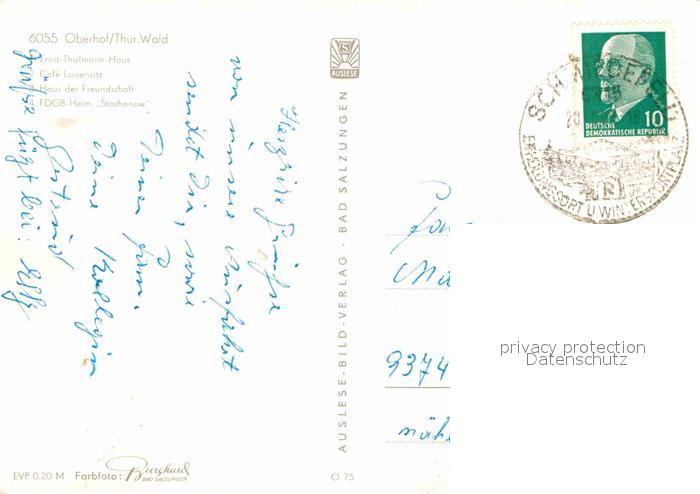 6055 Oberhof/Thür. Wald
Ernst-Thälmann-Haus
Café Luisensitz
3 Haus der Freundschaft
4. FDGB-Heim „Stachanow"
Herzliche Grüße
von unsere Ausfahrt
sendet Dir, sowie
Deiner Fam.
Deine Kollegin
Gertrud
Grüße fügt bei:
EVP 0,20 M Farbfoto: Burghard
BAD SALZUNGEN
S
AUSLESE
AUSLESE-BILD-VERLAG · BAD SALZUNGEN
O 75
DEUTSCHE
DEMOKRATISCHE REPUBLIK 10
ERHOLUNGSORT U WINTERSPORTPLATZ
Fam
9374
privacy protection
Datenschutz